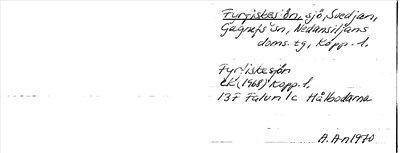 Fyrfiskesjön, sjö, Svedjan,
Gagnefs sn, Nedansiljans
doms. tg, Kopp. l.
Fyrfiskesjön
EK (1968) Kopp. l.
13F Falun 1c Hålbodarna
A. An 1970